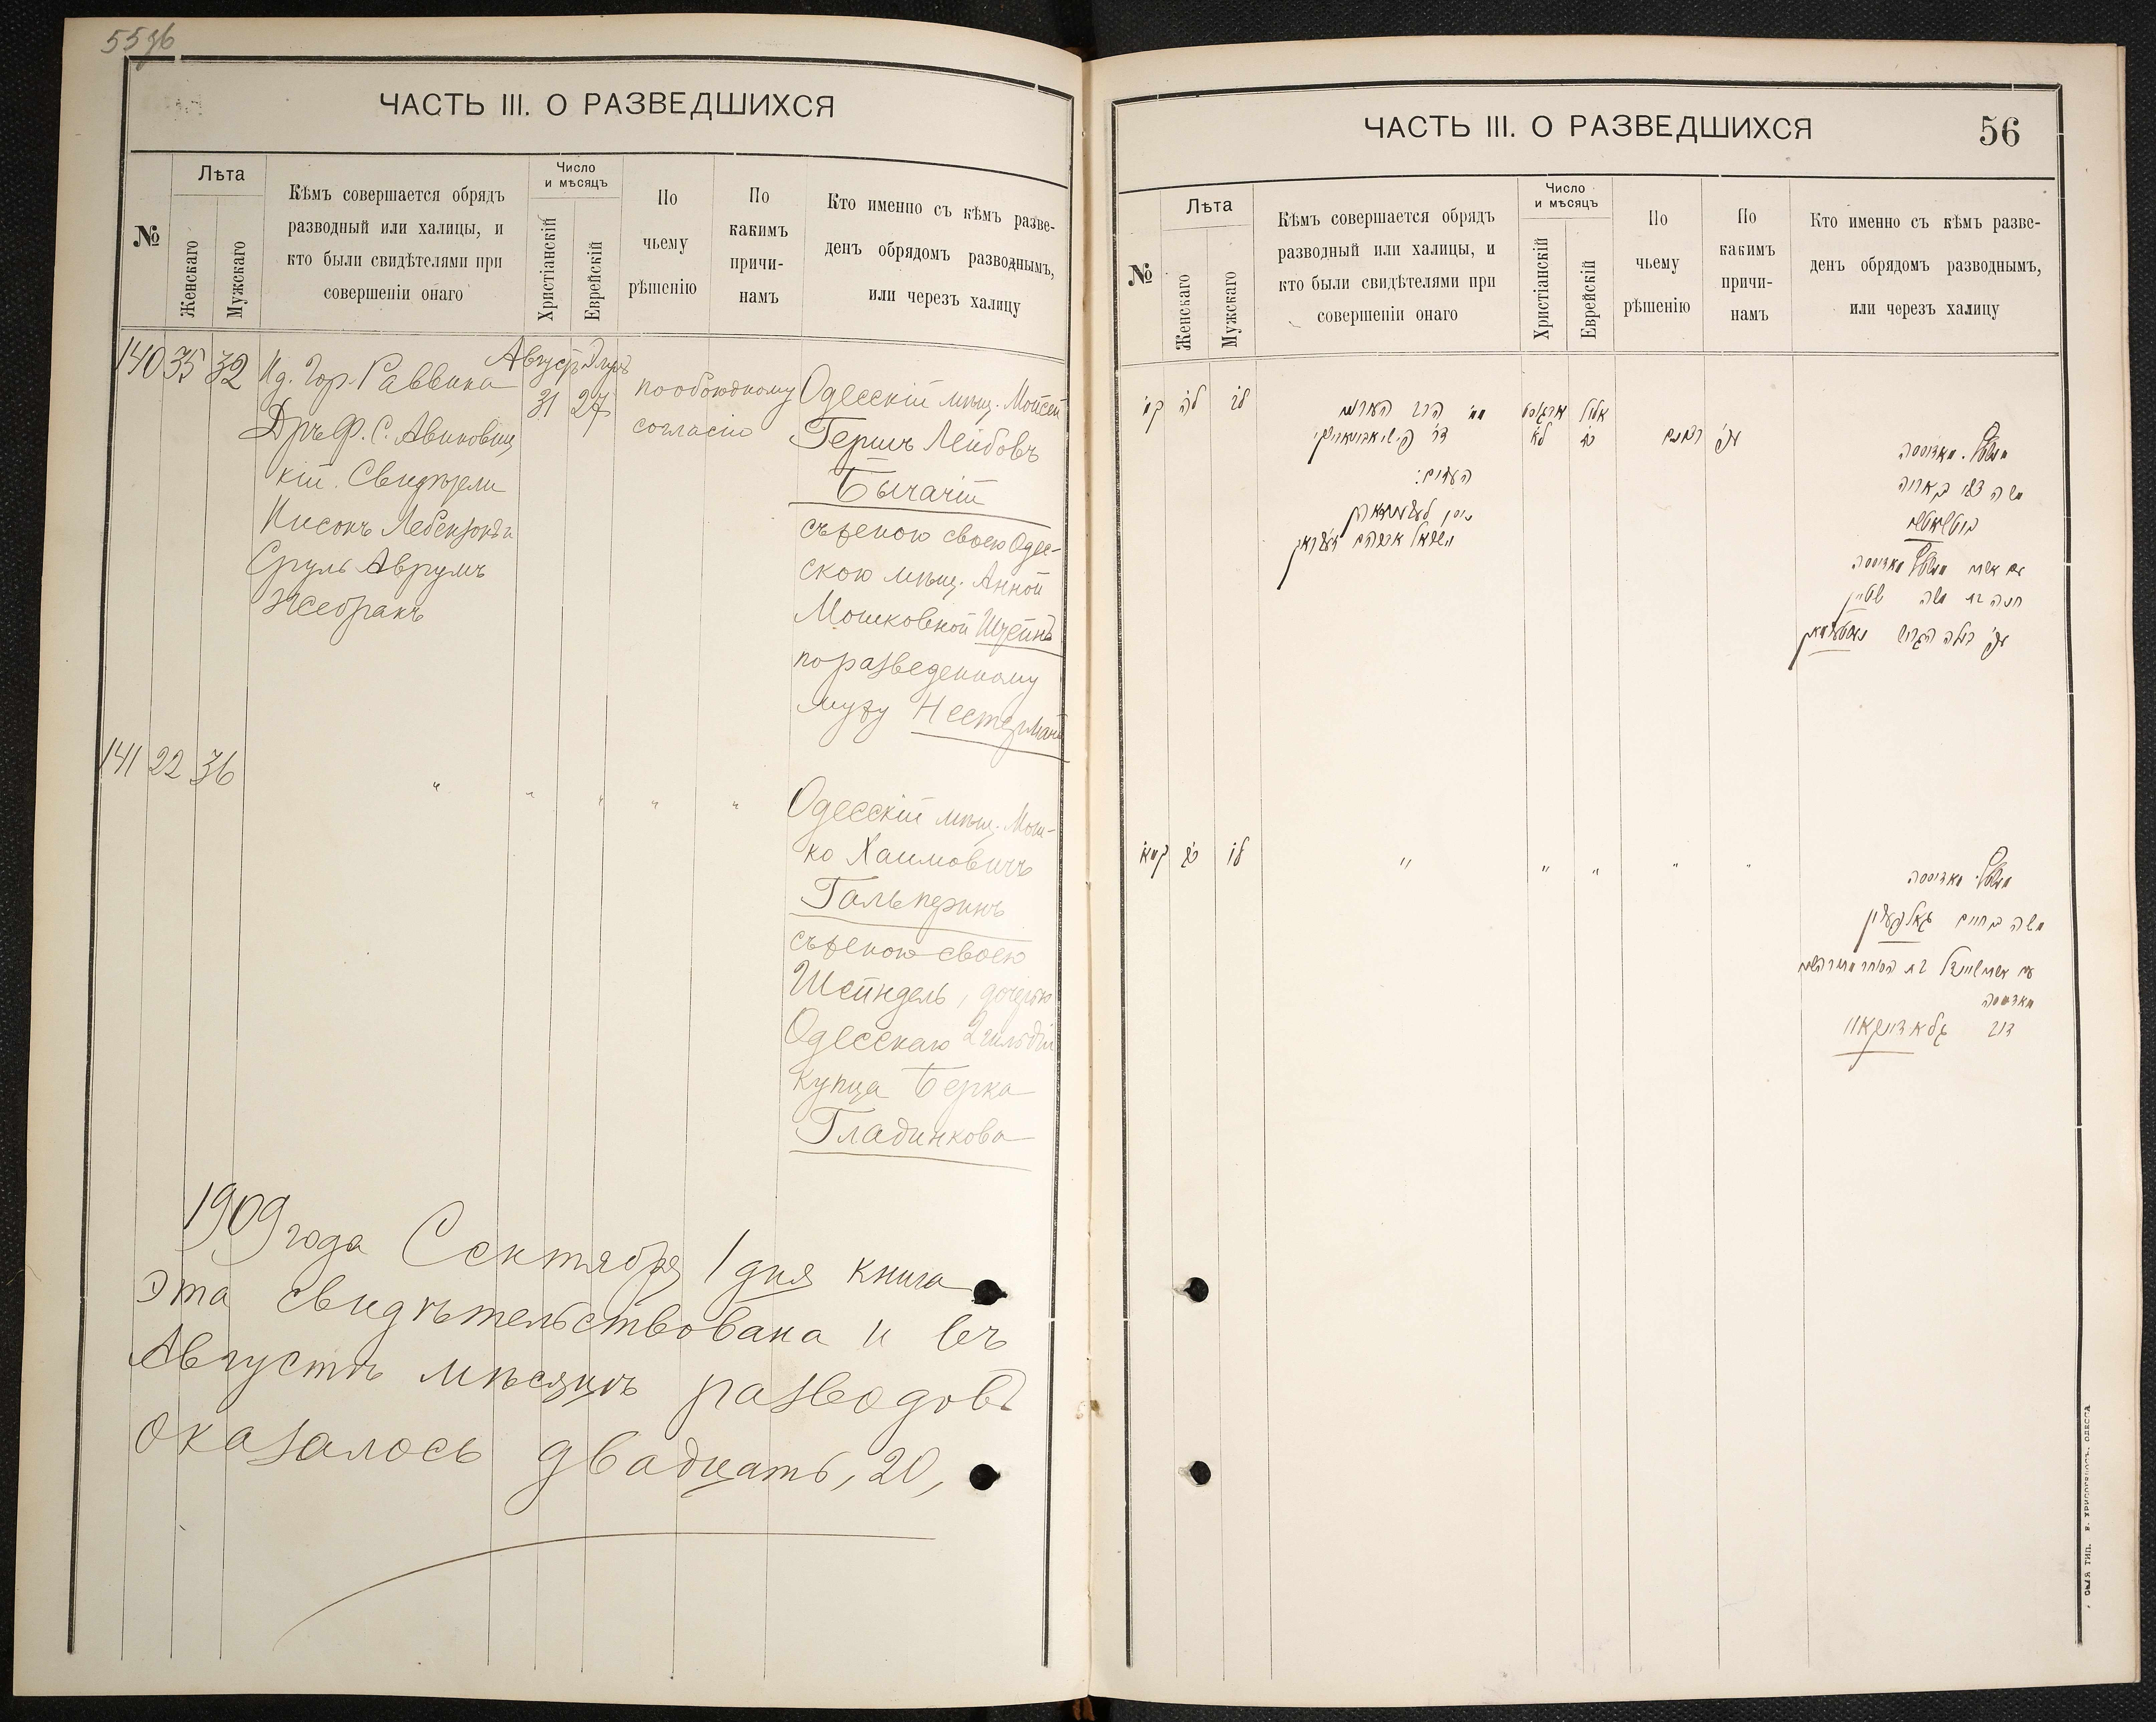 55 об
ЧАСТЬ III. О РАЗВЕДШИХСЯ
№
Лѣта
Женскаго
Мужскаго
Кѣмъ совершается обрядъ
разводный или халицы, и
кто были свидѣтелями при
совершеніи онаго
Число
и мѣсяцъ
Христіанскій
Еврейскій
По
чьему
рѣшенію
По
какимъ
причи-
намъ
Кто именно съ кѣмъ разве-
денъ обрядомъ разводнымъ,
или черезъ халицу
140 35 32
Ид. Гор. Раввина
Дръ Ф. С. Авиновиц
кій. Свидѣтели
Нисонъ Лебензонъ и
Сруль Аврумъ
Жебракъ
Августъ Элулъ
31 27
по обоюдному
согласію
Одесскій мѣщ. Мойсей
Гершъ Лейбовъ
Бычачій
съ женою своею Одес-
скою мѣщ. Анной
Мошковной Штейнъ
по разведенному
мужу Нестерманъ
141 22 36
" " " " "
Одесскій мѣщ. Мош-
ко Хаимовичъ
Гальперинъ
съ женою своею
Шейндель, дочерью
Одесскаго 2 гильдіи
купца Берка
Гладинкова
1909 года Сентября 1 дня книга
эта свидѣтельствована и въ
Августѣ мѣсяцѣ разводовъ
оказалось двадцать, 20,
ЧАСТЬ III. О РАЗВЕДШИХСЯ
56
№
Лѣта
Женскаго
Мужскаго
Кѣмъ совершается обрядъ
разводный или халицы, и
кто были свидѣтелями при
совершеніи онаго
Число
и мѣсяцъ
Христіанскій
Еврейскій
По
чьему
рѣшенію
По
какимъ
причи-
намъ
Кто именно съ кѣмъ разве-
денъ обрядомъ разводнымъ,
или черезъ халицу
קמ לה לב
הרב
העדים:
אויגוסט אלול
לא כז
עפ״י רצונם
מאדיססה
משה צבי בן אריה
עם אשתו מאדיססה
חנה בת משה שטיין
קמא כב לו
" " " " "
מאדיססה
משה בן חיים גאלפערין
עם אשתו שיינדל בת הסוחר
מאדיססה
דוב גלאדינקאוו